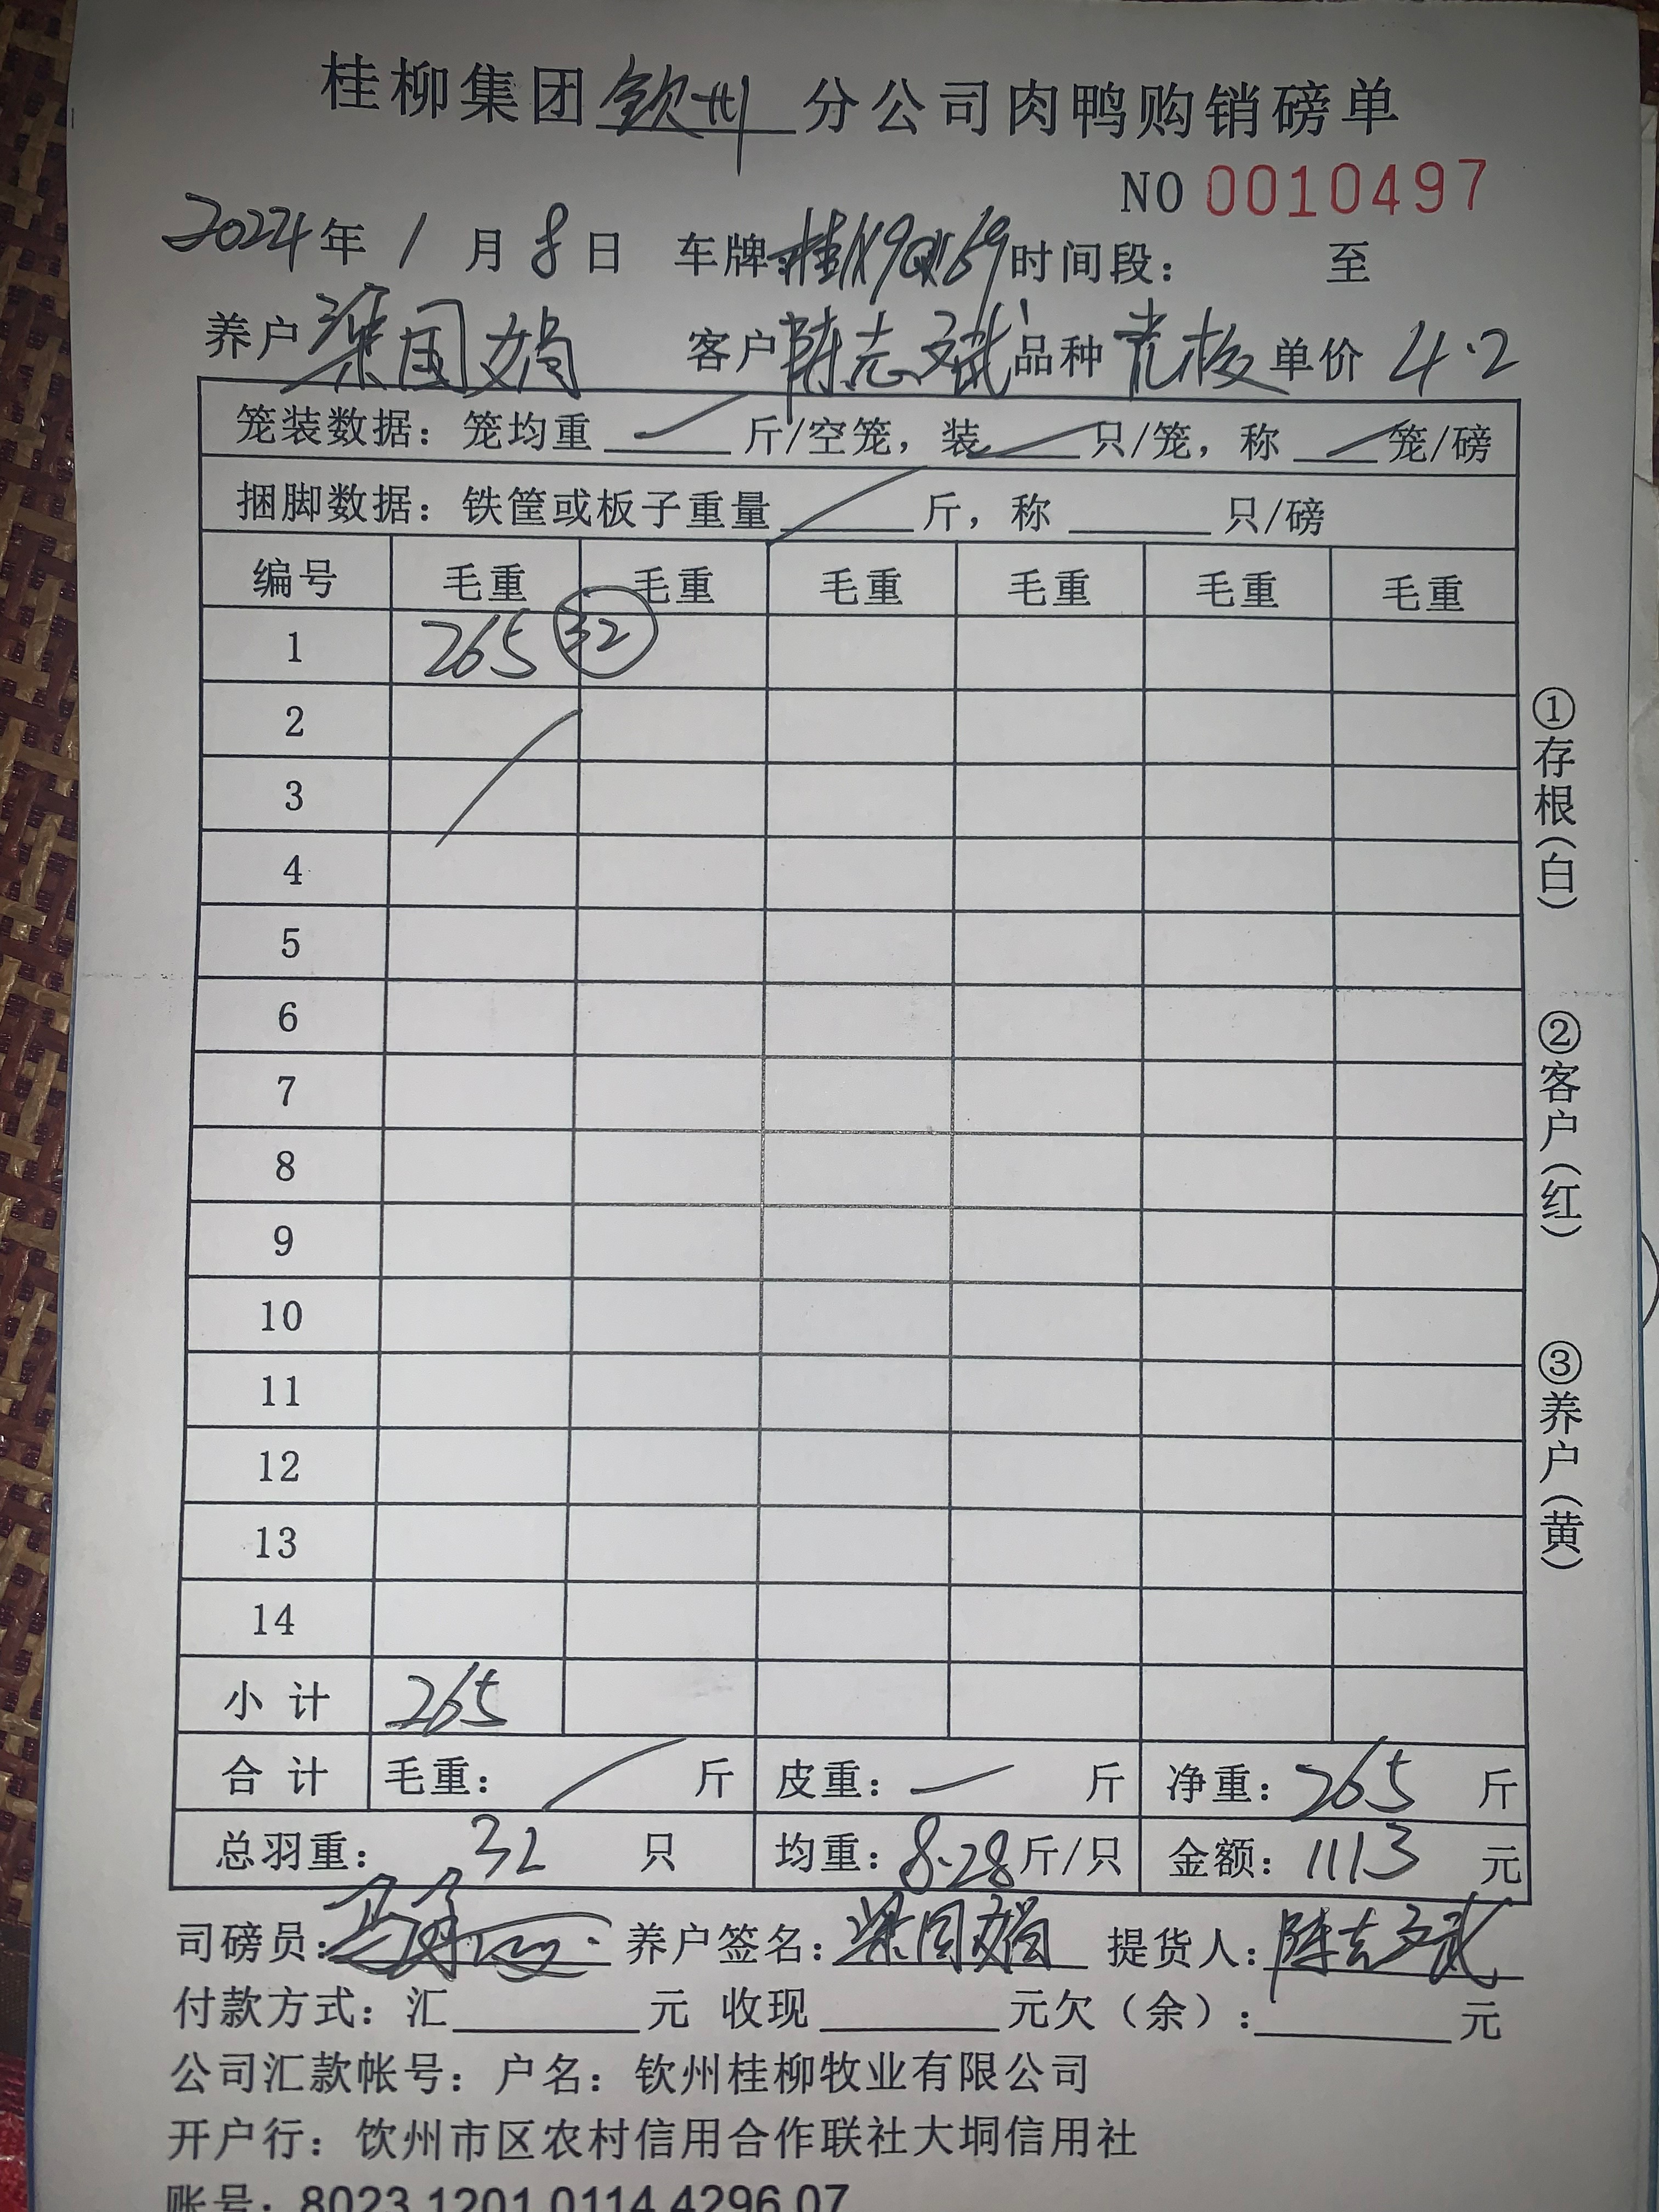 桂柳集团钦州分公司肉鸭购销磅单
NO 0010497
2024年1月8日 车牌: 时间段: 至
养户梁国娟 客户陈志斌 品种 单价 4.2
笼装数据:笼均重 斤/空笼,装 只/笼,称 笼/磅
捆脚数据:铁筐或板子重量 斤,称 只/磅
编号 毛重 毛重 毛重 毛重 毛重 毛重
1 265 32
2
3
4
5
6
7
8
9
10
11
12
13
14
小计 265
合计 毛重: 斤 皮重: 斤 净重:265 斤
总羽重: 32 只 均重:8.28斤/只 金额:1113 元
司磅员: 养户签名:梁国娟 提货人:陈志斌
付款方式:汇 元 收现 元欠(余): 元
公司汇款帐号:户名:钦州桂柳牧业有限公司
开户行:钦州市区农村信用合作联社大垌信用社
账号:8023 1201 0114 4296 07
①存根(白)
②客户(红)
③养户(黄)